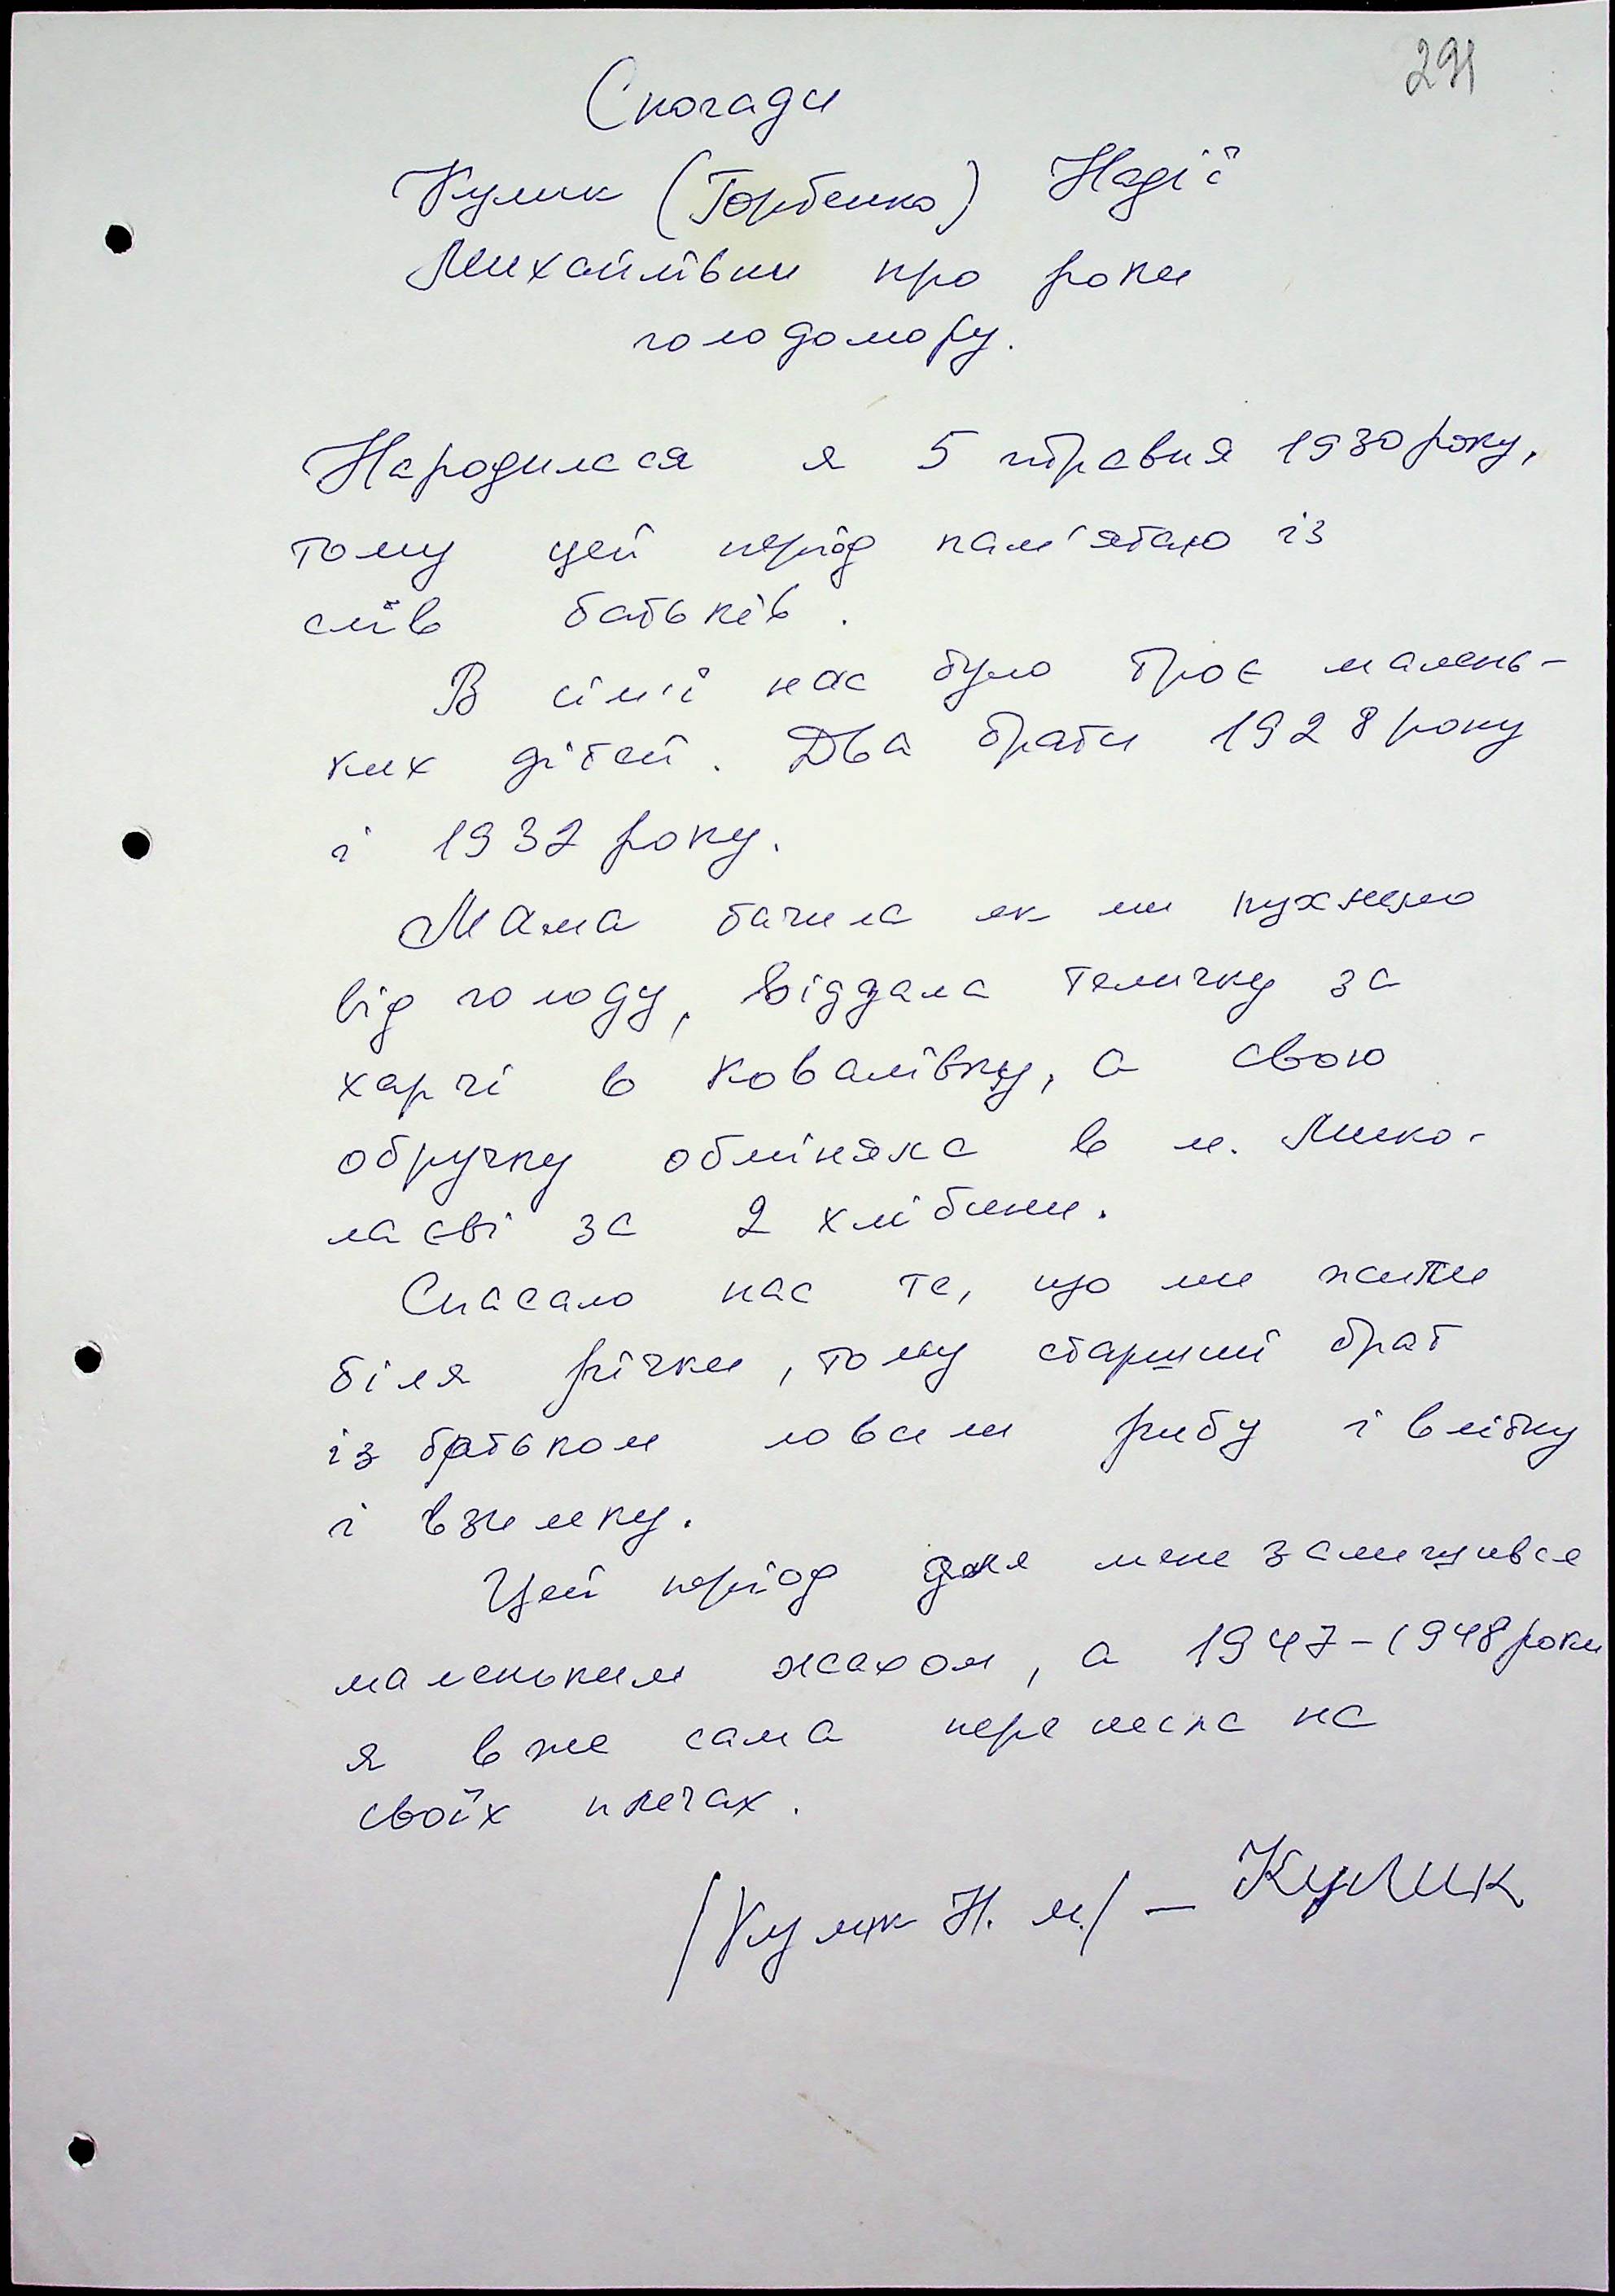 291
Спогади
Кулик (Горбенко) Надії
Михайлівни про роки
голодомору.
Народилася я 5 травня 1930 року,
тому цей період пам'ятаю із
слів батьків.
В сім'ї нас було троє малень-
ких дітей. Два брати 1928 року
і 1932 року.
Мама бачила як ми пухнемо
від голоду, віддала теличку за
харчі в Ковалівку, а свою
обручку обміняла в м. Мико-
лаєві за 2 хлібини.
Спасало нас те, що ми жили
біля річки, тому старший брат
із батьком ловили рибу і влітку
і взимку.
Цей період для мене залишився
маленьким жахом, а 1947-1948 роки
я вже сама перенесла на
своїх плечах.
/Кулик Н. М./ – Кулик